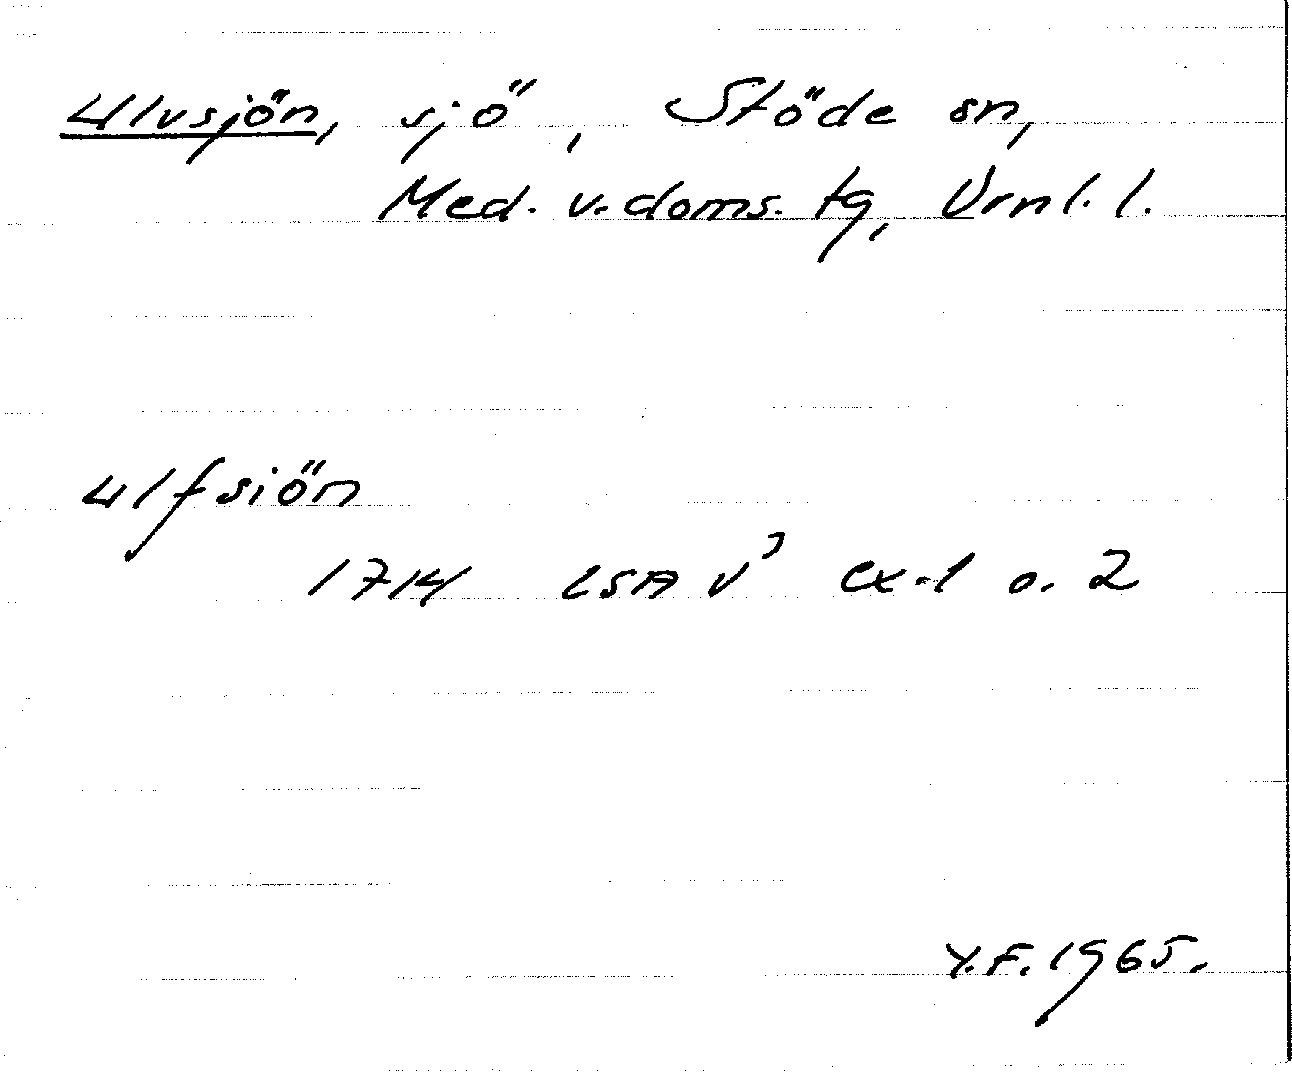 Ulvsjön, sjö, Stöde sn,
Med. v. doms. tg, Vrnl. l.
Ulfsiön
1714 LSA V³ ex-1 o. 2
Y.F. 1965.